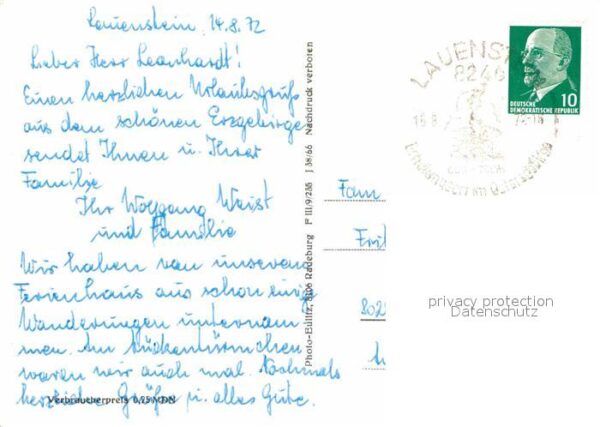 Lauenstein, 14.8.72
Lieber Herr Leonhardt!
Einen herzlichen Urlaubsgruß
aus dem schönen Erzgebirge
sendet Ihnen u. Ihrer
Familie
Ihr Wolfgang Weist
und Familie
Wir haben von unserem
Ferienhaus aus schon einige
Wanderungen unternom
men. Am Mückentürmchen
waren wir auch mal. Nochmals
herzliche Grüße u. alles Gute.
Verbraucherpreis 0,25 MDN
Photo-Eulitz, 8106 Radeburg P III/9/235 J 38/66 Nachdruck verboten
LAUENST
8246
DEUTSCHE
DEMOKRATISCHE REPUBLIK
10
Fam
802
privacy protection
Datenschutz